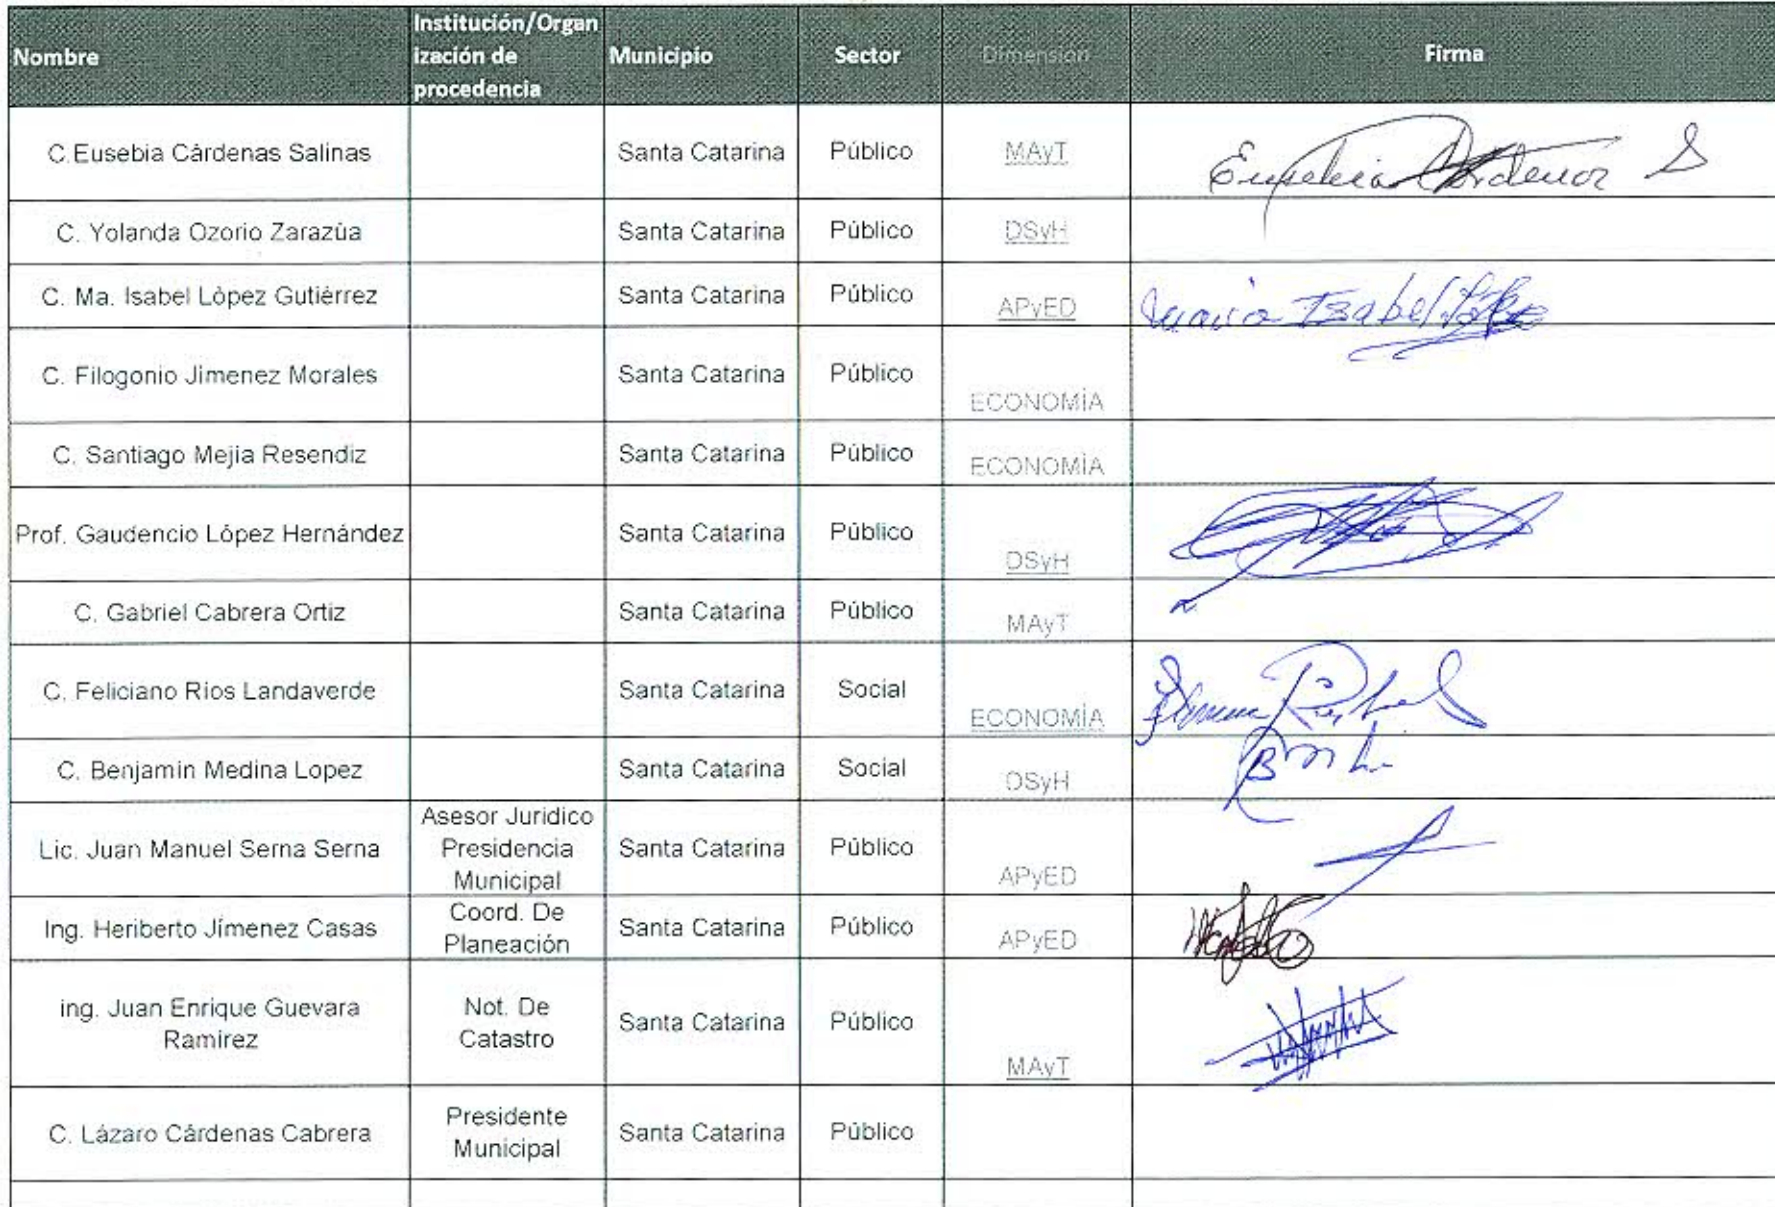 Nombre Institución/Organ Municipio Sector Dimension Firma
ización de
procedencia
C.Eusebia Cárdenas Salinas Santa Catarina Público MAyT Eusebia Cárdenas S
C. Yolanda Ozorio Zarazúa Santa Catarina Público DSyH
C. Ma. Isabel López Gutiérrez Santa Catarina Público APyED Maria Isabel
C. Filogonio Jimenez Morales Santa Catarina Público ECONOMÍA
C. Santiago Mejia Resendiz Santa Catarina Público ECONOMÍA
Prof. Gaudencio López Hernández Santa Catarina Público DSyH
C. Gabriel Cabrera Ortiz Santa Catarina Público MAyT
C. Feliciano Rios Landaverde Santa Catarina Social ECONOMÍA
C. Benjamin Medina Lopez Santa Catarina Social DSyH
Lic. Juan Manuel Serna Serna Asesor Juridico Santa Catarina Público APyED
Presidencia
Municipal
Ing. Heriberto Jímenez Casas Coord. De Santa Catarina Público APyED
Planeación
ing. Juan Enrique Guevara Not. De Santa Catarina Público MAyT
Ramírez Catastro
C. Lázaro Cárdenas Cabrera Presidente Santa Catarina Público
Municipal